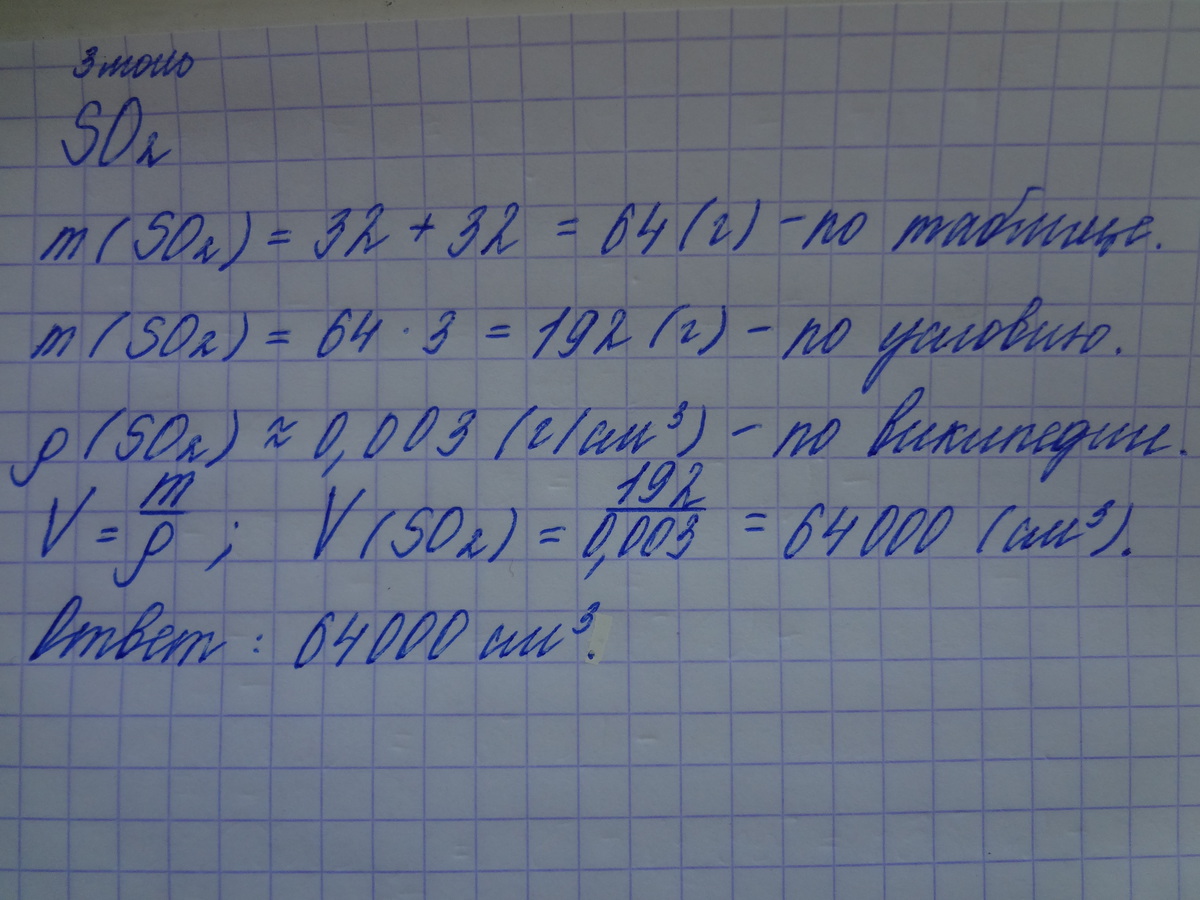 3 моль
SO₂
m (SO₂) = 32 + 32 = 64 (г) - по таблице.
m (SO₂) = 64 · 3 = 192 (г) - по условию.
ρ (SO₂) ≈ 0,003 (г/см³) - по википедии.
V = m/ρ ; V (SO₂) = 192/0,003 = 64000 (см³).
Ответ : 64000 см³.